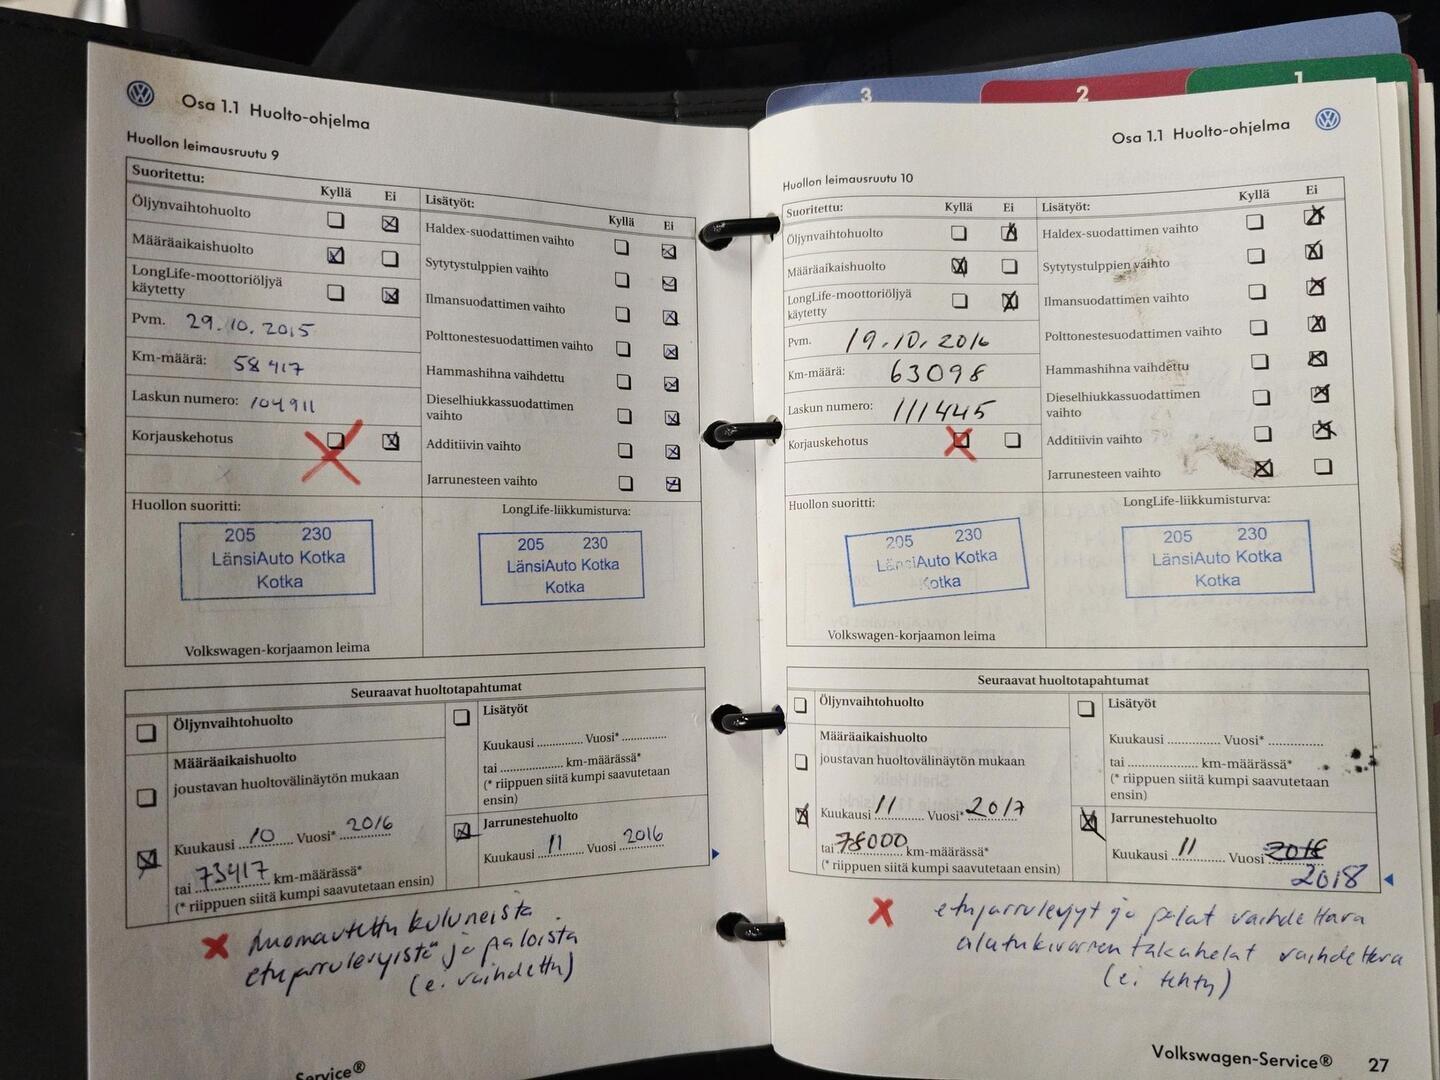 Osa 1.1 Huolto-ohjelma
Huollon leimausruutu 9
Suoritettu:
Kyllä Ei
Öljynvaihtohuolto
Määräaikaishuolto
LongLife-moottoriöljyä
käytetty
Pvm. 29.10.2015
Km-määrä: 58417
Laskun numero: 104911
Korjauskehotus
Lisätyöt:
Kyllä Ei
Haldex-suodattimen vaihto
Sytytystulppien vaihto
Ilmansuodattimen vaihto
Polttonestesuodattimen vaihto
Hammashihna vaihdettu
Dieselhiukkassuodattimen
vaihto
Additiivin vaihto
Jarrunesteen vaihto
Huollon suoritti:
205 230
LänsiAuto Kotka
Kotka
Volkswagen-korjaamon leima
LongLife-liikkumisturva:
205 230
LänsiAuto Kotka
Kotka
Seuraavat huoltotapahtumat
Öljynvaihtohuolto
Määräaikaishuolto
joustavan huoltovälinäytön mukaan
Kuukausi 10 Vuosi* 2016
tai 73417 km-määrässä*
(* riippuen siitä kumpi saavutetaan ensin)
Lisätyöt
Kuukausi .............. Vuosi* ..............
tai .................... km-määrässä*
(* riippuen siitä kumpi saavutetaan
ensin)
Jarrunestehuolto
Kuukausi 11 Vuosi 2016
x huomautettu kuluneista
etujarrulevyistä ja paloista
(ei vaihdettu)
Service®
3
2
1
Osa 1.1 Huolto-ohjelma
Huollon leimausruutu 10
Suoritettu:
Kyllä Ei
Öljynvaihtohuolto
Määräaikaishuolto
LongLife-moottoriöljyä
käytetty
Pvm. 19.10.2016
Km-määrä: 63098
Laskun numero: 111445
Korjauskehotus
Lisätyöt:
Kyllä Ei
Haldex-suodattimen vaihto
Sytytystulppien vaihto
Ilmansuodattimen vaihto
Polttonestesuodattimen vaihto
Hammashihna vaihdettu
Dieselhiukkassuodattimen
vaihto
Additiivin vaihto
Jarrunesteen vaihto
Huollon suoritti:
205 230
LänsiAuto Kotka
Kotka
Volkswagen-korjaamon leima
LongLife-liikkumisturva:
205 230
LänsiAuto Kotka
Kotka
Seuraavat huoltotapahtumat
Öljynvaihtohuolto
Määräaikaishuolto
joustavan huoltovälinäytön mukaan
Kuukausi 11 Vuosi* 2017
tai 78000 km-määrässä*
(* riippuen siitä kumpi saavutetaan ensin)
Lisätyöt
Kuukausi .............. Vuosi* ..............
tai .................... km-määrässä*
(* riippuen siitä kumpi saavutetaan
ensin)
Jarrunestehuolto
Kuukausi 11 Vuosi 2018
2018
x etujarrulevyt ja palat vaihdettava
alatukivarren takahelat vaihdettava
(ei tehty)
Volkswagen-Service® 27